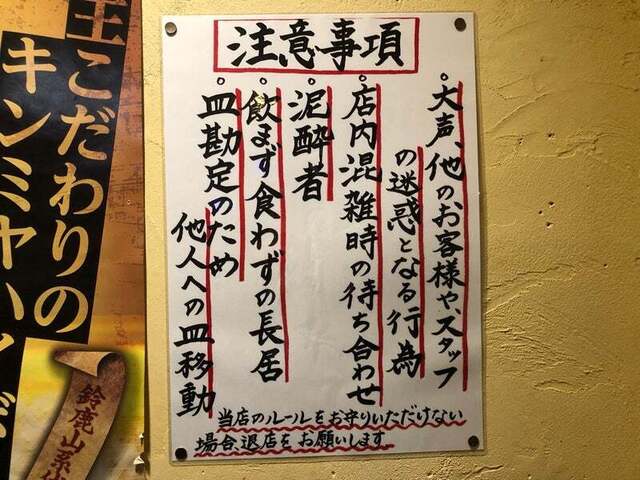 注意事項
。大声、他のお客様や、スタッフ
の迷惑となる行為
。店内混雑時の待ち合わせ
。泥酔者
。飲まず食わずの長居
。皿勘定のため
他人への皿移動
当店のルールをお守りいただけない
場合、退店をお願いします
王こだわりの
キンミヤハイ
鈴鹿山系